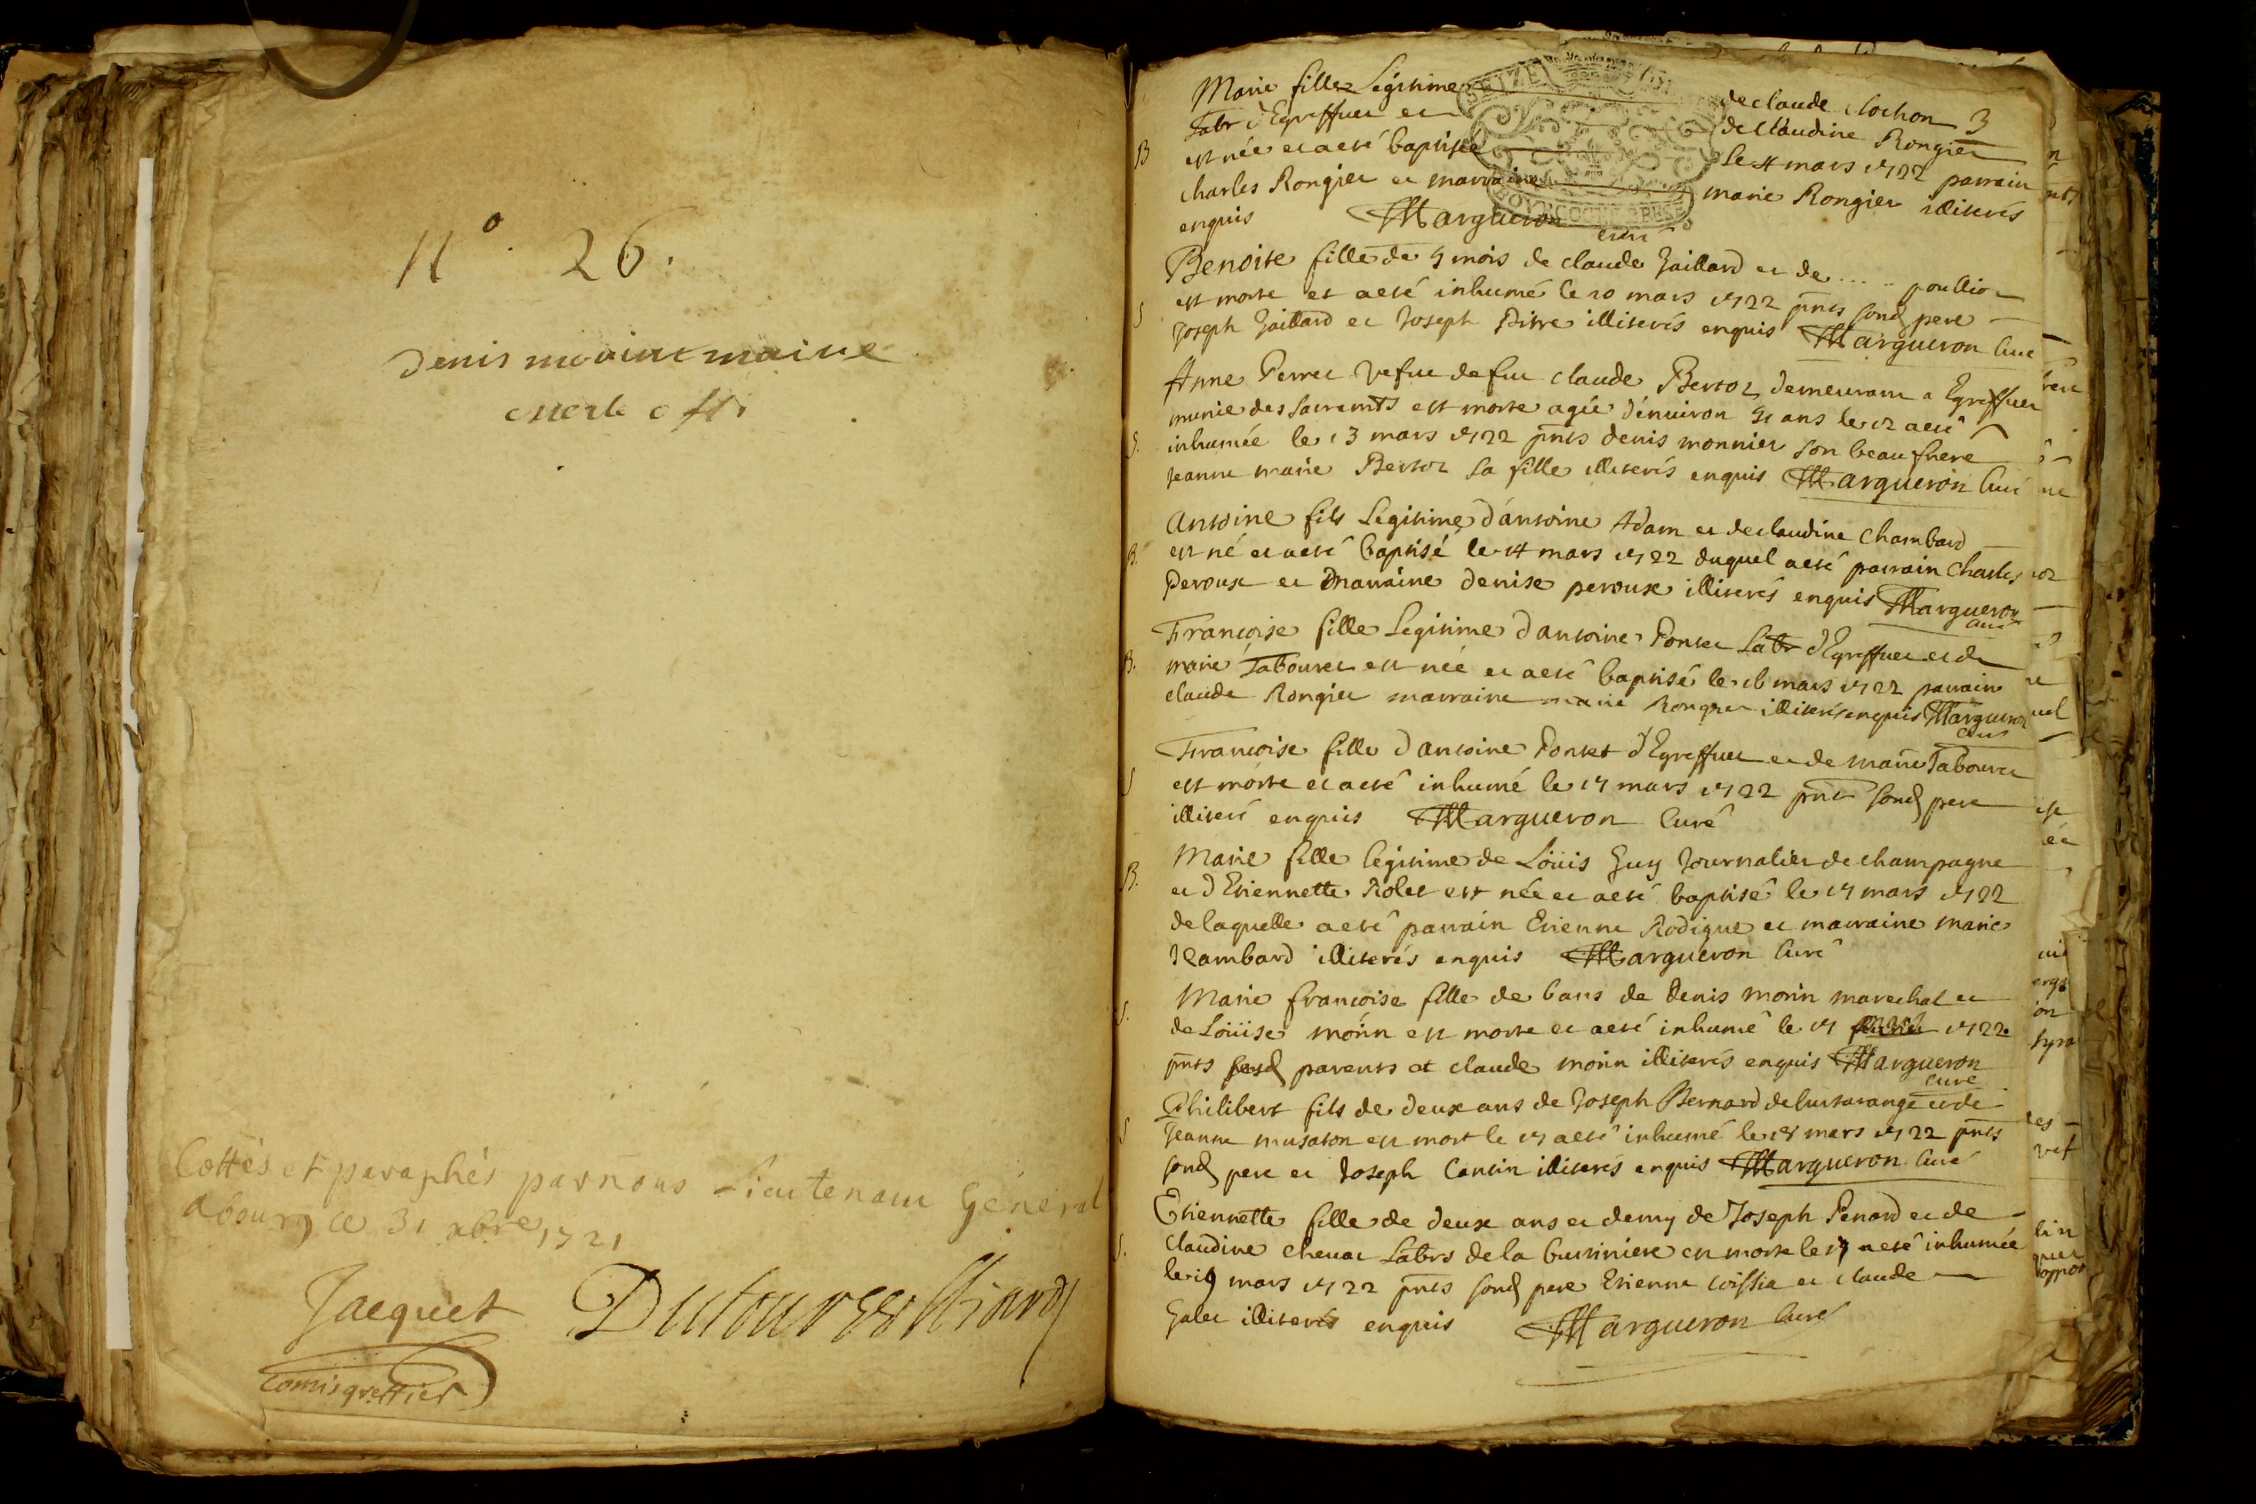 N° 26.
Denis
Cottés et paraphés par nous Lieutenant Général
a bourg ce 31 xbre 1721
Jacquet
Comis greffier
3
Marie fille Légitime de claude clochon
Labr d'Egreffuer et de Claudine Rongier
B est née et a eté baptisée le 4 mars 1722 parrain
charles Rongier et marraine marie Rongier illiterés
enquis Margueron curé
Benoite fille de 9 mois de claude Gaillard et de .... poullio
S est morte et a eté inhumé le 10 mars 1722 pnts sond pere
Joseph Gaillard et Joseph Pitre illiterés enquis Margueron Curé
Anne Perret vefue de feu claude Bertoz demeurant a Egreffuer
munie des sacremts est morte agée d'enuiron 51 ans le 12 a eté
S. inhumée le 13 mars 1722 pnts denis monnier son beau frere
Jeanne marie Bertoz sa fille illiterés enquis Margueron Curé
Antoine fils Legitime d'antoine Adam et de claudine Chambard
B. est né et a eté baptisé le 14 mars 1722 duquel a eté parrain Charles
Peroux et Marraine denise peroux illiterés enquis Margueron
curé
Françoise fille Legitime d'antoine Ponset Labr d'Egreffuer et de
B. marie Tabouret est née et a eté baptisé le 16 mars 1722 parrain
claude Rongier marraine marie Rongier illiterés enquis Margueron
curé
Françoise fille d'antoine Ponset d'Egreffuer et de marie Tabouret
S est morte et a eté inhumé le 17 mars 1722 pnt sond pere
illiteré enquis Margueron Curé
Marie fille legitime de Loüis Guy Journalier de champagne
B. et d'Etiennette Rolet est née et a eté baptisé le 17 mars 1722
de laquelle a eté parrain Etienne Rodigue et marraine marie
Jeambard illiterés enquis Margueron Curé
Marie françoise fille de 6 ans de Denis Morin marechal et
S. de Loüise morin est morte et a eté inhumé le 17 mars 1722
pnts sesd parents et claude morin illiterés enquis Margueron
Curé
Philibert fils de deux ans de Joseph Bernard de et de
S Jeanne musaton est mort le 17 a eté inhumé le 18 mars 1722 pnts
sond pere et Joseph Cantin illiterés enquis Margueron Curé
Etiennette fille de deux ans et demy de Joseph Penard et de
S. claudine cheuat Labrs de la est morte le 17 a eté inhumée
le 19 mars 1722 pnts sond pere Etienne coissia et claude
Galet illiterés enquis Margueron Curé